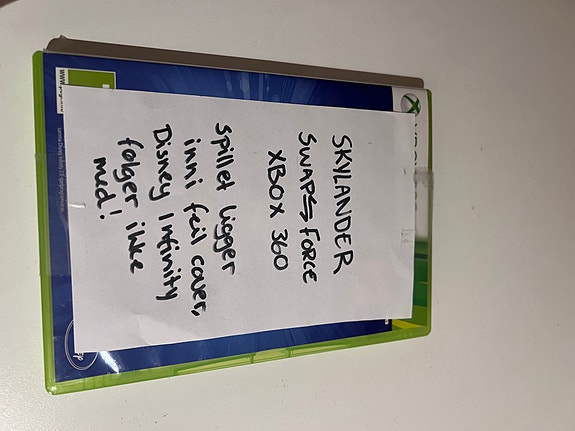 SKYLANDER
SWAP⇆FORCE
XBOX 360
Spillet ligger
inni feil cover,
Disney Infinity
følger ikke
med!